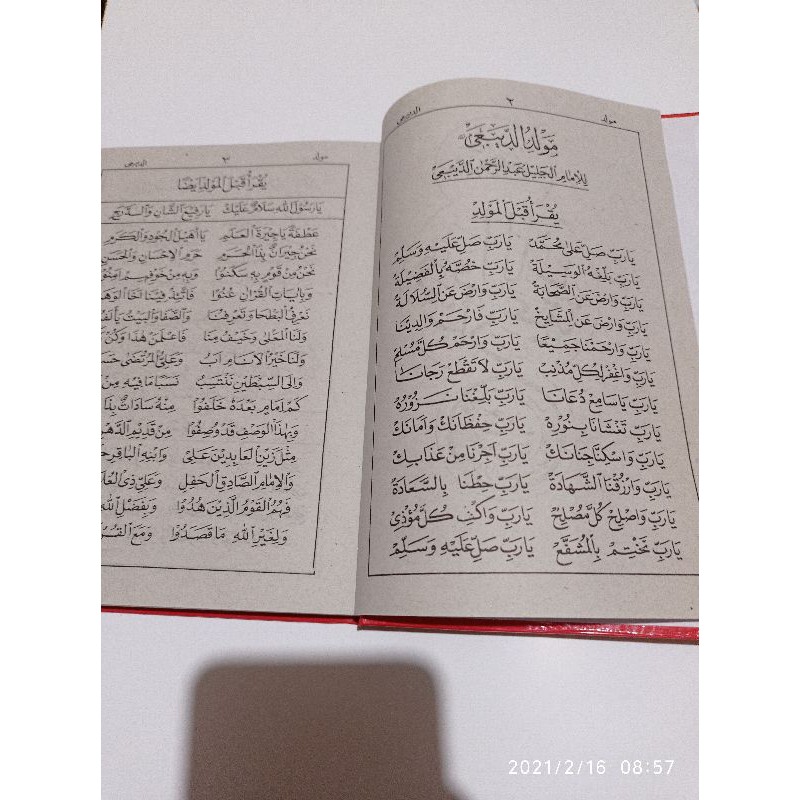 مولد
٢
الديبعي
مَوْلِدُ الدِّيْبَعِيْ
لِلْإِمَامِ الْجَلِيْلِ عَبْدِ الرَّحْمٰنِ الدَّيْبَعِيْ
يُقْرَأُ قَبْلَ الْمَوْلِدِ
يَارَبِّ صَلِّ عَلٰى مُحَمَّدْ يَارَبِّ صَلِّ عَلَيْهِ وَسَلِّمْ
يَارَبِّ بَلِّغْهُ الْوَسِيْلَةْ يَارَبِّ خُصَّهُ بِالْفَضِيْلَةْ
يَارَبِّ وَارْضَ عَنِ الصَّحَابَةْ يَارَبِّ وَارْضَ عَنِ السُّلَالَةْ
يَارَبِّ وَارْضَ عَنِ الْمَشَايِخْ يَارَبِّ فَارْحَمْ وَالِدِيْنَا
يَارَبِّ وَارْحَمْنَا جَمِيْعًا يَارَبِّ وَارْحَمْ كُلَّ مُسْلِمْ
يَارَبِّ وَاغْفِرْ لِكُلِّ مُذْنِبْ يَارَبِّ لَا تَقْطَعْ رَجَانَا
يَارَبِّ يَاسَامِعْ دُعَانَا يَارَبِّ بَلِّغْنَا نَزُوْرُهْ
يَارَبِّ تَغْشَانَا بِنُوْرِهْ يَارَبِّ حِفْظَانَكْ وَاَمَانَكْ
يَارَبِّ وَاسْكِنَّا جِنَانَكْ يَارَبِّ اَجِرْنَا مِنْ عَذَابِكْ
يَارَبِّ وَارْزُقْنَا الشَّهَادَةْ يَارَبِّ حِطْنَا بِالسَّعَادَةْ
يَارَبِّ وَاصْلِحْ كُلَّ مُصْلِحْ يَارَبِّ وَاكْفِ كُلَّ مُؤْذِيْ
يَارَبِّ نَخْتِمْ بِالْمُشَفَّعْ يَارَبِّ صَلِّ عَلَيْهِ وَسَلِّمْ
مولد
٣
الديبعي
يُقْرَأُ قَبْلَ الْمَوْلِدِ اَيْضًا
يَارَسُوْلَ اللهِ سَلَامٌ عَلَيْكَ يَارَفِيْعَ الشَّانِ وَالدَّرَجِ
عَطْفَةً يَاجِيْرَةَ الْعَلَمِ يَااُهَيْلَ الْجُوْدِ وَالْكَرَمِ
نَحْنُ جِيْرَانٌ بِذَا الْحَرَمِ حَرَمِ الْاِحْسَانِ وَالْحَسَنِ
نَحْنُ مِنْ قَوْمٍ بِهِ سَكَنُوْا وَبِهِ مِنْ خَوْفِهِمْ اَمِنُوْا
وَبِاٰيَاتِ الْقُرْاٰنِ عُنُوْا فَاتَّئِدْ فِيْنَا اَخَا
نَعْرِفُ الْبَطْحَا وَتَعْرِفُنَا وَالصَّفَا وَالْبَيْتُ
وَلَنَا الْمَعْلٰى وَخَيْفُ مِنَا فَاعْلَمَنْ هٰذَا وَكُنْ
وَلَنَا خَيْرُ الْاَنَامِ اَبُ وَعَلِيُّ الْمُرْتَضٰى
وَاِلَى السِّبْطَيْنِ نَنْتَسِبُ نَسَبًا مَافِيْهِ مِنْ
كَمْ اِمَامٍ بَعْدَهُ خَلَفُوْا مِنْهُ سَادَاتٌ
وَبِهٰذَا الْوَصْفِ قَدْ وُصِفُوْا مِنْ قَدِيْمِ الدَّهْرِ
مِثْلُ زَيْنِ الْعَابِدِيْنَ عَلِيْ وَابْنِهِ الْبَاقِرِ
وَالْاِمَامِ الصَّادِقِ الْحَفِلِ وَعَلِيٍّ ذِى
فَهُمُ الْقَوْمُ الَّذِيْنَ هُدُوْا وَبِفَضْلِ اللهِ
وَلِغَيْرِ اللهِ مَا قَصَدُوْا وَمَعَ
2021/2/16 08:57